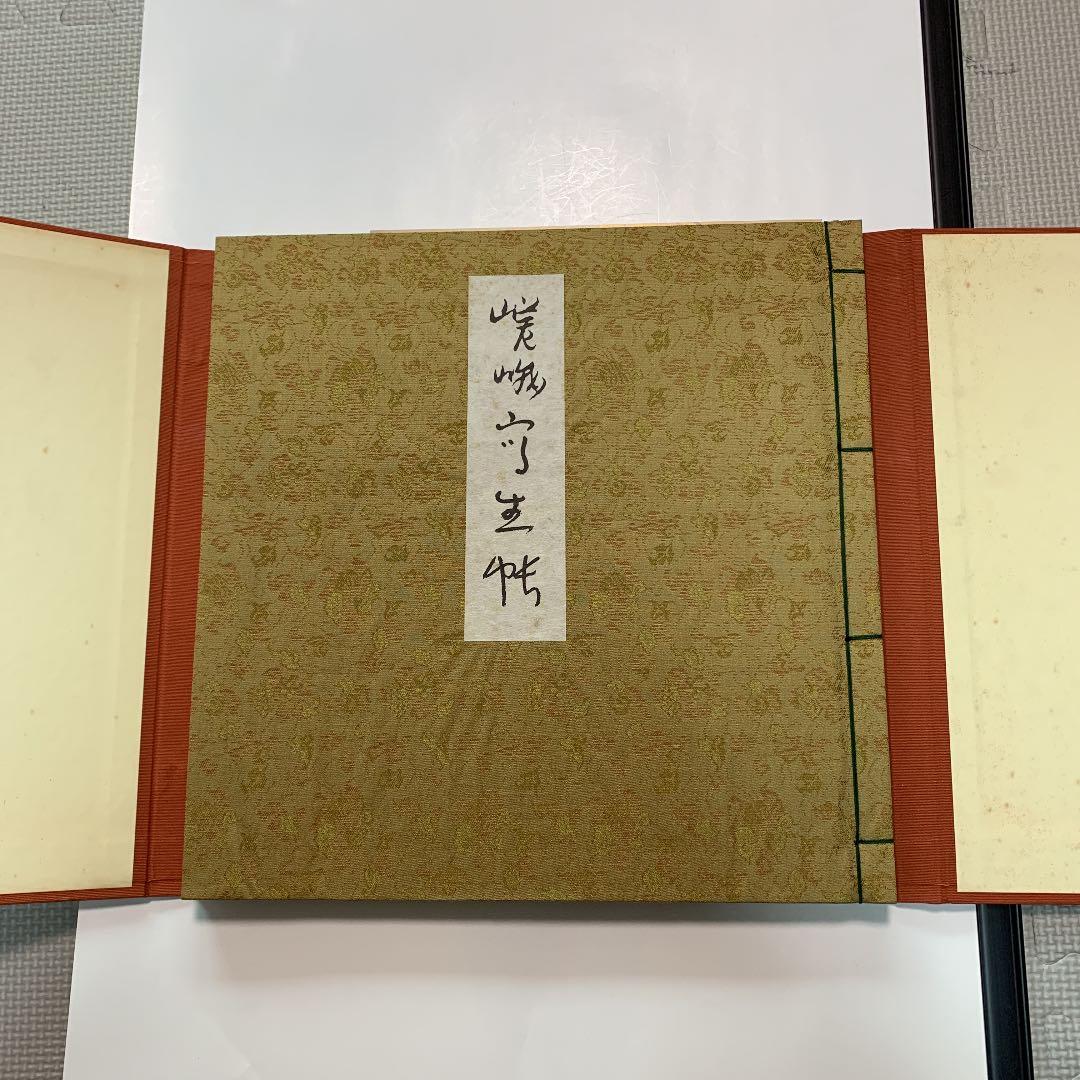 嵯峨写生帖